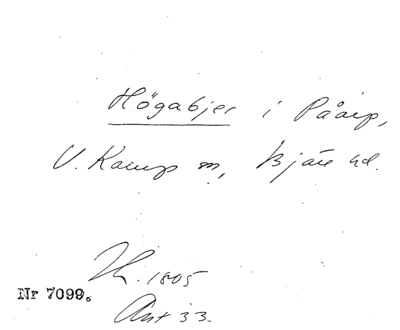 Högabjer i Påarp,
V. Karup sn, Bjäre hd.
1805
Nr 7099.
Ant 33.